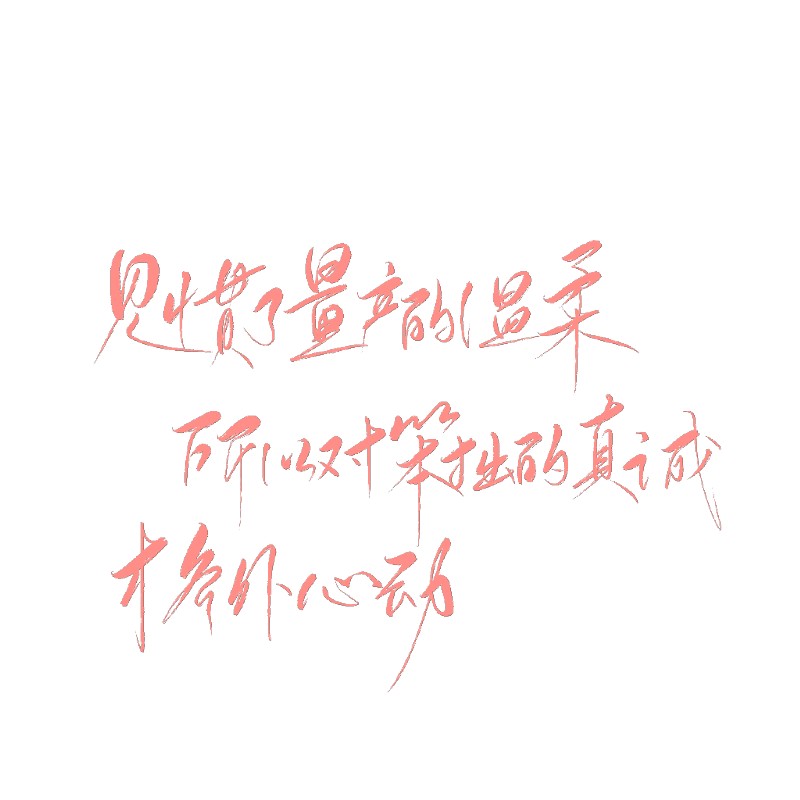 见惯了量产的温柔
所以对笨拙的真诚
格外心动